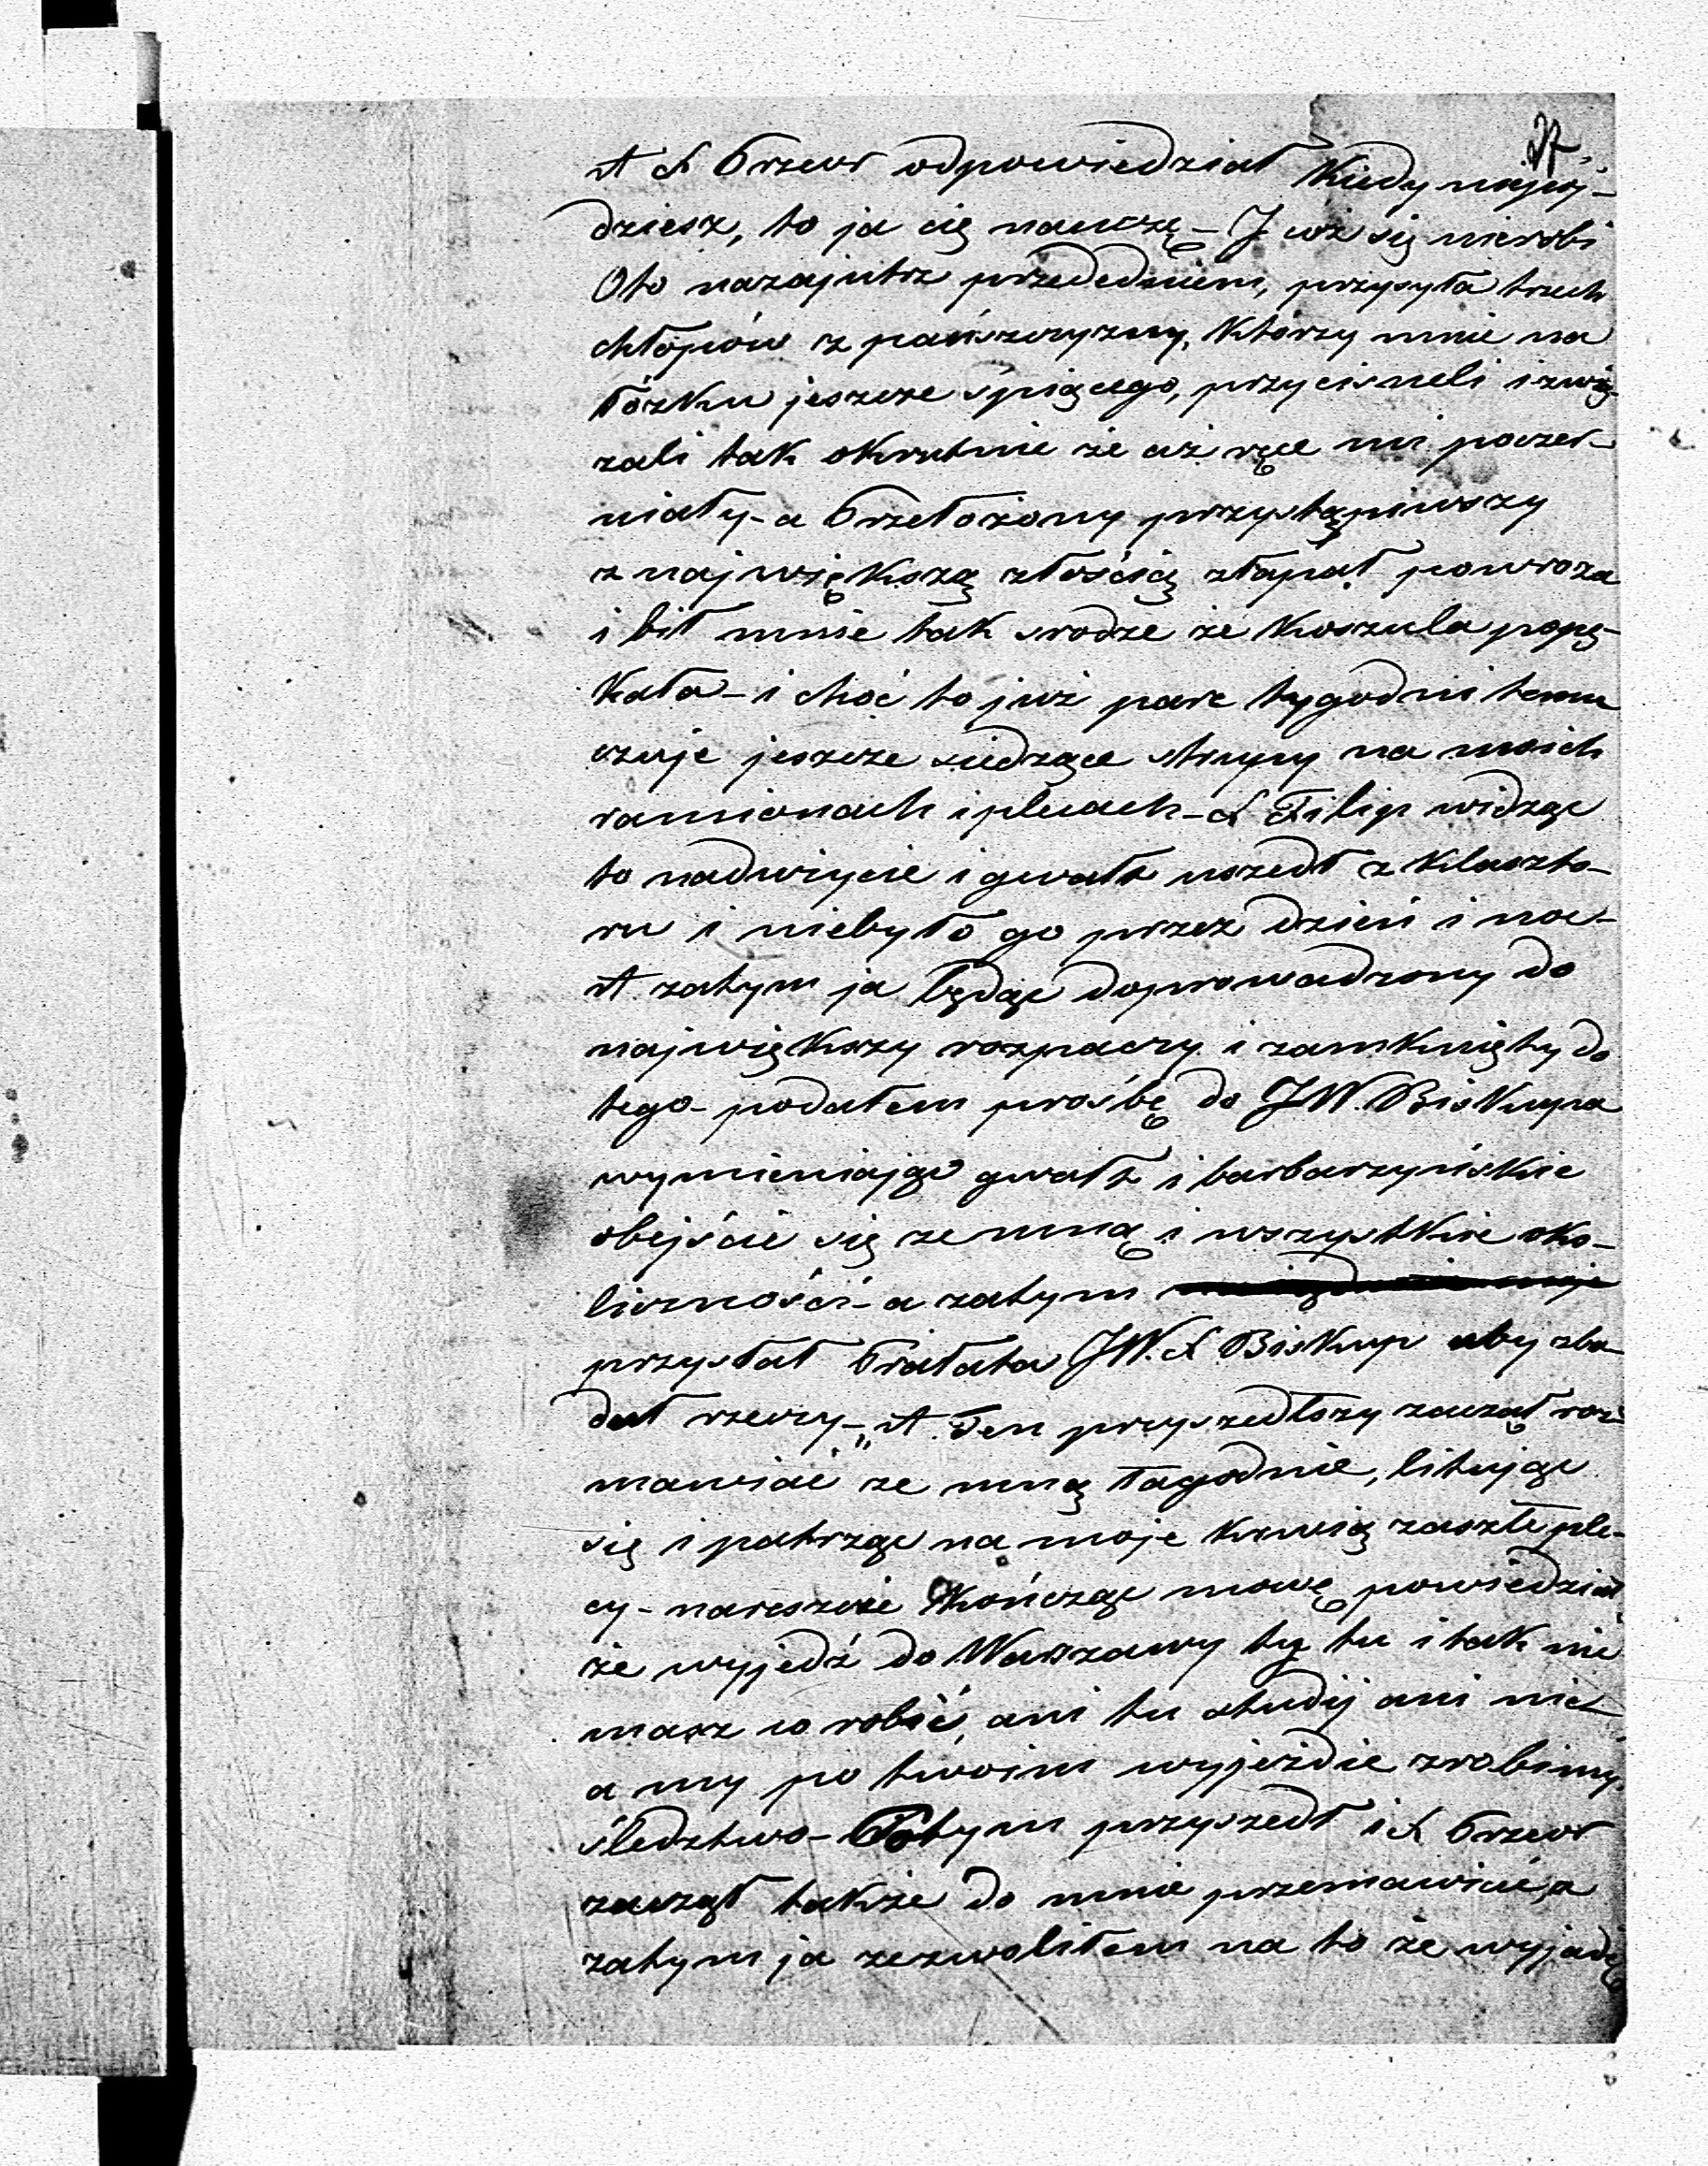 27
A X Przeor odpowiedział kiedy niejej-
dziesz, to ja cię nauczę – I cóż się nierobi
Oto nazajutrz przededniem, przysyła trzech
chłopów z pańszczyzny, którzy mnie na
łóżku jeszcze śpiącego, przycisneli i zwią-
zali tak okrutnie że aż ręce mi poczer-
niały – a Przełożony przystąpiwszy
z największą złością złapał powroza
i bił mnie tak srodze że koszula popę-
kała – i choć to już pare tygodni temu
czuje jeszcze siedzące strupy na moich
ramionach i plecach – X Filip widząc
to nadużycie i gwałt uszedł z klaszto-
ru i niebyło go przez dzień i noc –
A zatym ja będąc doprowadzony do
największy rozpaczy i zamknięty do
tego – podałem prośbę do JW. Biskupa
wymieniając gwałt i barbarzyńskie
obejście się ze mną i wszystkie oko-
liczności – a zatym
przysłał Prałata JW. X Biskup aby zba-
dał rzeczy – „A Ten przyszedłszy zaczął roz-
mawiać ze mną łagodnie, litując
się i patrząc na moje krwią zaszłe ple-
cy – nareszcie kończąc mowę powiedział
że wyjedź do Warszawy ty tu i tak nie
masz co robić, ani tu studij ani nic
a my po twoim wyjeździe zrobimy
śledztwo – Potym przyszedł i X Przeor
zaczął także do mnie przemawiać, a
zatym ja zezwoliłem na to że wyjadę